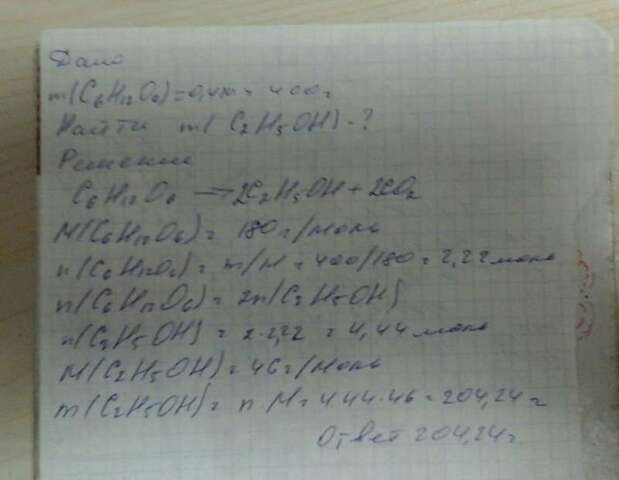 Дано
m(C6H12O6)=0,4кг = 400г
Найти m(C2H5OH)-?
Решение
C6H12O6 → 2C2H5OH + 2CO2
M(C6H12O6) = 180 г/моль
n(C6H12O6) = m/M = 400/180 = 2,22 моль
n(C6H12O6) = 2n(C2H5OH)
n(C2H5OH) = 2·2,22 = 4,44 моль
M(C2H5OH) = 46 г/моль
m(C2H5OH) = n M = 444·46 = 204,24 г
Ответ 204,24г